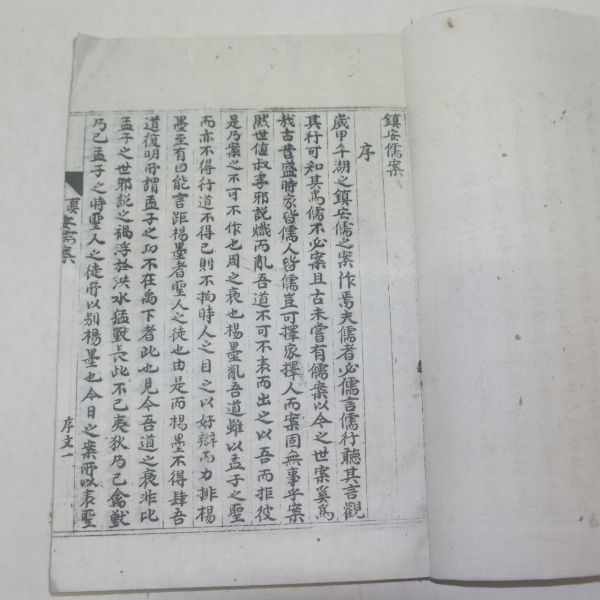 鎮安儒案
序
歲甲午湖之鎮安儒之案作焉夫儒者必儒言儒行聽其言觀
其行可知其爲儒不必案且古未嘗有儒案以今之世案奚爲
哉古昔盛時家皆儒人皆儒豈可擇家擇人而案固無事乎案
然世值叔季邪說熾而亂吾道不可不表而出之以吾而拒彼
是乃案之不可不作也周之衰也楊墨亂吾道雖以孟子之聖
而亦不得行道不得已則不拘時人之目之以好辯而力排楊
墨至有曰能言距楊墨者聖人之徒也由是而楊墨不得肆吾
道復明所謂孟子之功不在禹下者此也見今吾道之衰非比
孟子之世邪說之禍浮於洪水猛獸長此不已夷狄乃已禽獸
乃已孟子之時聖人之徒所以別楊墨也今日之案所以表聖
鎮安儒案
序文一